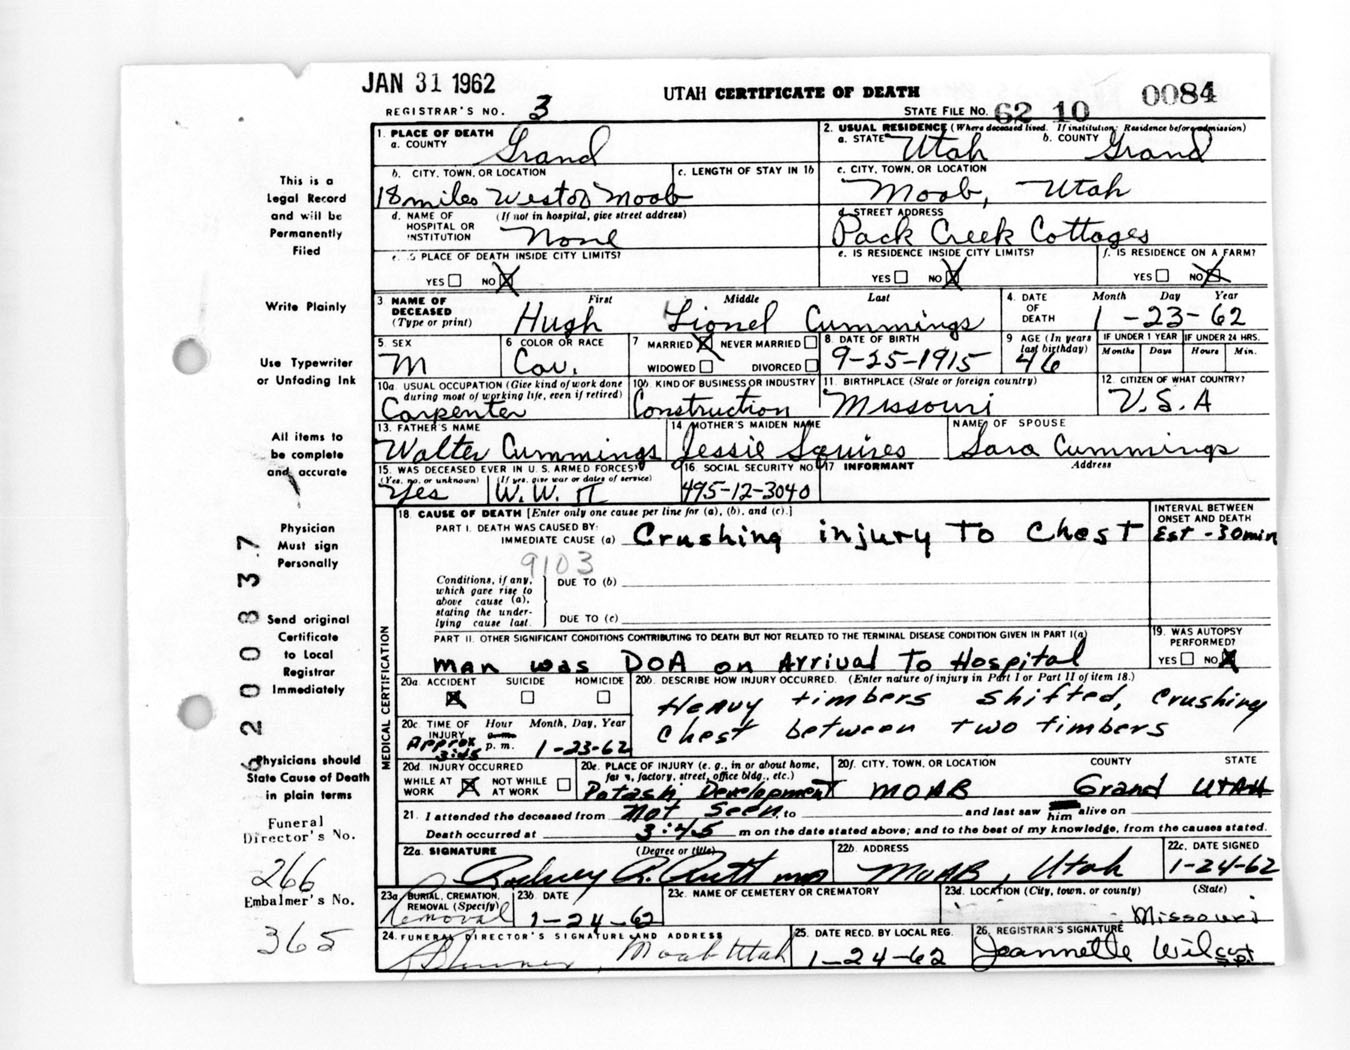 JAN 31 1962
UTAH CERTIFICATE OF DEATH
0084
REGISTRAR'S NO. 3
STATE FILE NO. 62 10
1. PLACE OF DEATH
a. COUNTY Grand
2. USUAL RESIDENCE (Where deceased lived. If institution: Residence before admission)
a. STATE Utah b. COUNTY Grand
b. CITY, TOWN, OR LOCATION
18 miles West of Moab
c. LENGTH OF STAY IN 1b
c. CITY, TOWN, OR LOCATION
Moab, Utah
d. NAME OF HOSPITAL OR INSTITUTION (If not in hospital, give street address)
None
d. STREET ADDRESS
Pack Creek Cottages
e. IS PLACE OF DEATH INSIDE CITY LIMITS?
YES NO X
e. IS RESIDENCE INSIDE CITY LIMITS?
YES NO X
f. IS RESIDENCE ON A FARM?
YES NO X
3. NAME OF DECEASED (Type or print)
First Middle Last
Hugh Lionel Cummings
4. DATE OF DEATH Month Day Year
1-23-62
5. SEX
M
6. COLOR OR RACE
Cau.
7 MARRIED X NEVER MARRIED
WIDOWED DIVORCED
8. DATE OF BIRTH
9-25-1915
9 AGE (In years last birthday)
46
IF UNDER 1 YEAR
Months Days
IF UNDER 24 HRS.
Hours Min.
10a. USUAL OCCUPATION (Give kind of work done during most of working life, even if retired)
Carpenter
10b. KIND OF BUSINESS OR INDUSTRY
Construction
11. BIRTHPLACE (State or foreign country)
Missouri
12. CITIZEN OF WHAT COUNTRY?
U.S.A
13. FATHER'S NAME
Walter Cummings
14 MOTHER'S MAIDEN NAME
Jessie Squires
NAME OF SPOUSE
Sara Cummings
15. WAS DECEASED EVER IN U.S. ARMED FORCES?
(Yes, no, or unknown) (If yes, give war or dates of service)
Yes W.W. II
16. SOCIAL SECURITY NO.
495-12-3040
17 INFORMANT Address
18. CAUSE OF DEATH [Enter only one cause per line for (a), (b), and (c).]
PART I. DEATH WAS CAUSED BY:
IMMEDIATE CAUSE (a) Crushing injury To Chest
INTERVAL BETWEEN ONSET AND DEATH
Est - 30 min
9103
Conditions, if any, which gave rise to above cause (a), stating the underlying cause last.
DUE TO (b)
DUE TO (c)
PART II. OTHER SIGNIFICANT CONDITIONS CONTRIBUTING TO DEATH BUT NOT RELATED TO THE TERMINAL DISEASE CONDITION GIVEN IN PART I(a)
man was DOA on Arrival To Hospital
19. WAS AUTOPSY PERFORMED?
YES NO X
MEDICAL CERTIFICATION
20a. ACCIDENT SUICIDE HOMICIDE
X
20b. DESCRIBE HOW INJURY OCCURRED. (Enter nature of injury in Part I or Part II of item 18.)
Heavy timbers shifted, crushing
chest between two timbers
20c. TIME OF INJURY Hour Month, Day, Year
Approx 3:45 p. m. 1-23-62
20d. INJURY OCCURRED
WHILE AT WORK X NOT WHILE AT WORK
20e. PLACE OF INJURY (e. g., in or about home, farm, factory, street, office bldg., etc.)
Potash Development
20f. CITY, TOWN, OR LOCATION COUNTY STATE
MOAB Grand UTAH
21. I attended the deceased from Not Seen to and last saw him alive on
Death occurred at 3:45 m on the date stated above; and to the best of my knowledge, from the causes stated.
22a. SIGNATURE (Degree or title)
22b. ADDRESS
MOAB, Utah
22c. DATE SIGNED
1-24-62
23a. BURIAL, CREMATION, REMOVAL (Specify)
Removal
23b. DATE
1-24-62
23c. NAME OF CEMETERY OR CREMATORY
23d. LOCATION (City, town, or county) (State)
Missouri
24. FUNERAL DIRECTOR'S SIGNATURE AND ADDRESS
Moab Utah
25. DATE RECD. BY LOCAL REG.
1-24-62
26. REGISTRAR'S SIGNATURE
Jeannette
This is a
Legal Record
and will be
Permanently
Filed
Write Plainly
Use Typewriter
or Unfading Ink
All items to
be complete
and accurate
Physician
Must sign
Personally
Send original
Certificate
to Local
Registrar
Immediately
Physicians should
State Cause of Death
in plain terms
Funeral
Director's No.
266
Embalmer's No.
365
6200837